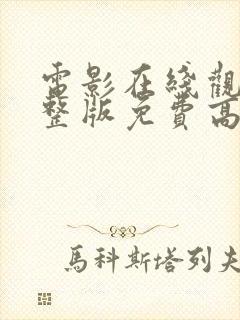 電影在綫觀
整版免費高
馬科斯塔列夫